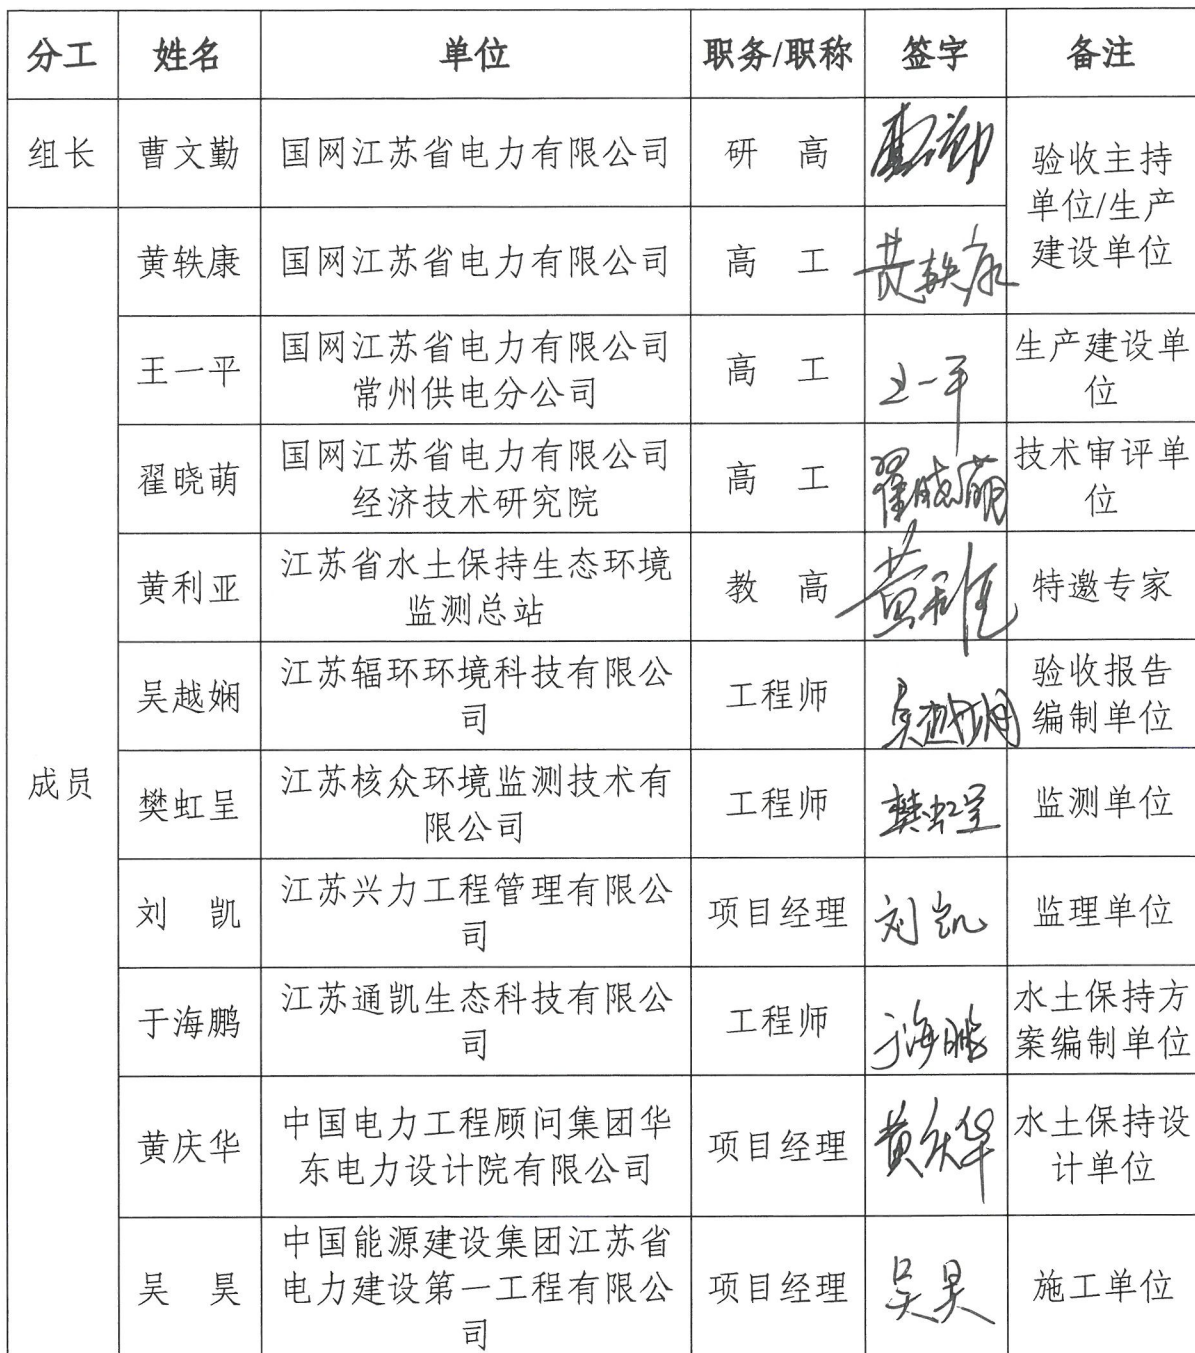 分工 姓名 单位 职务/职称 签字 备注
组长 曹文勤 国网江苏省电力有限公司 研 高 曹文勤
验收主持
单位/生产
建设单位
成员
黄轶康 国网江苏省电力有限公司 高 工 黄轶康
王一平 国网江苏省电力有限公司
常州供电分公司 高 工 王一平 生产建设单
位
翟晓萌 国网江苏省电力有限公司
经济技术研究院 高 工 翟晓萌 技术审评单
位
黄利亚 江苏省水土保持生态环境
监测总站 教 高 黄利亚 特邀专家
吴越娴 江苏辐环环境科技有限公
司 工程师 吴越娴 验收报告
编制单位
樊虹呈 江苏核众环境监测技术有
限公司 工程师 樊虹呈 监测单位
刘 凯 江苏兴力工程管理有限公
司 项目经理 刘凯 监理单位
于海鹏 江苏通凯生态科技有限公
司 工程师 于海鹏 水土保持方
案编制单位
黄庆华 中国电力工程顾问集团华
东电力设计院有限公司 项目经理 黄庆华 水土保持设
计单位
吴 昊 中国能源建设集团江苏省
电力建设第一工程有限公
司 项目经理 吴昊 施工单位